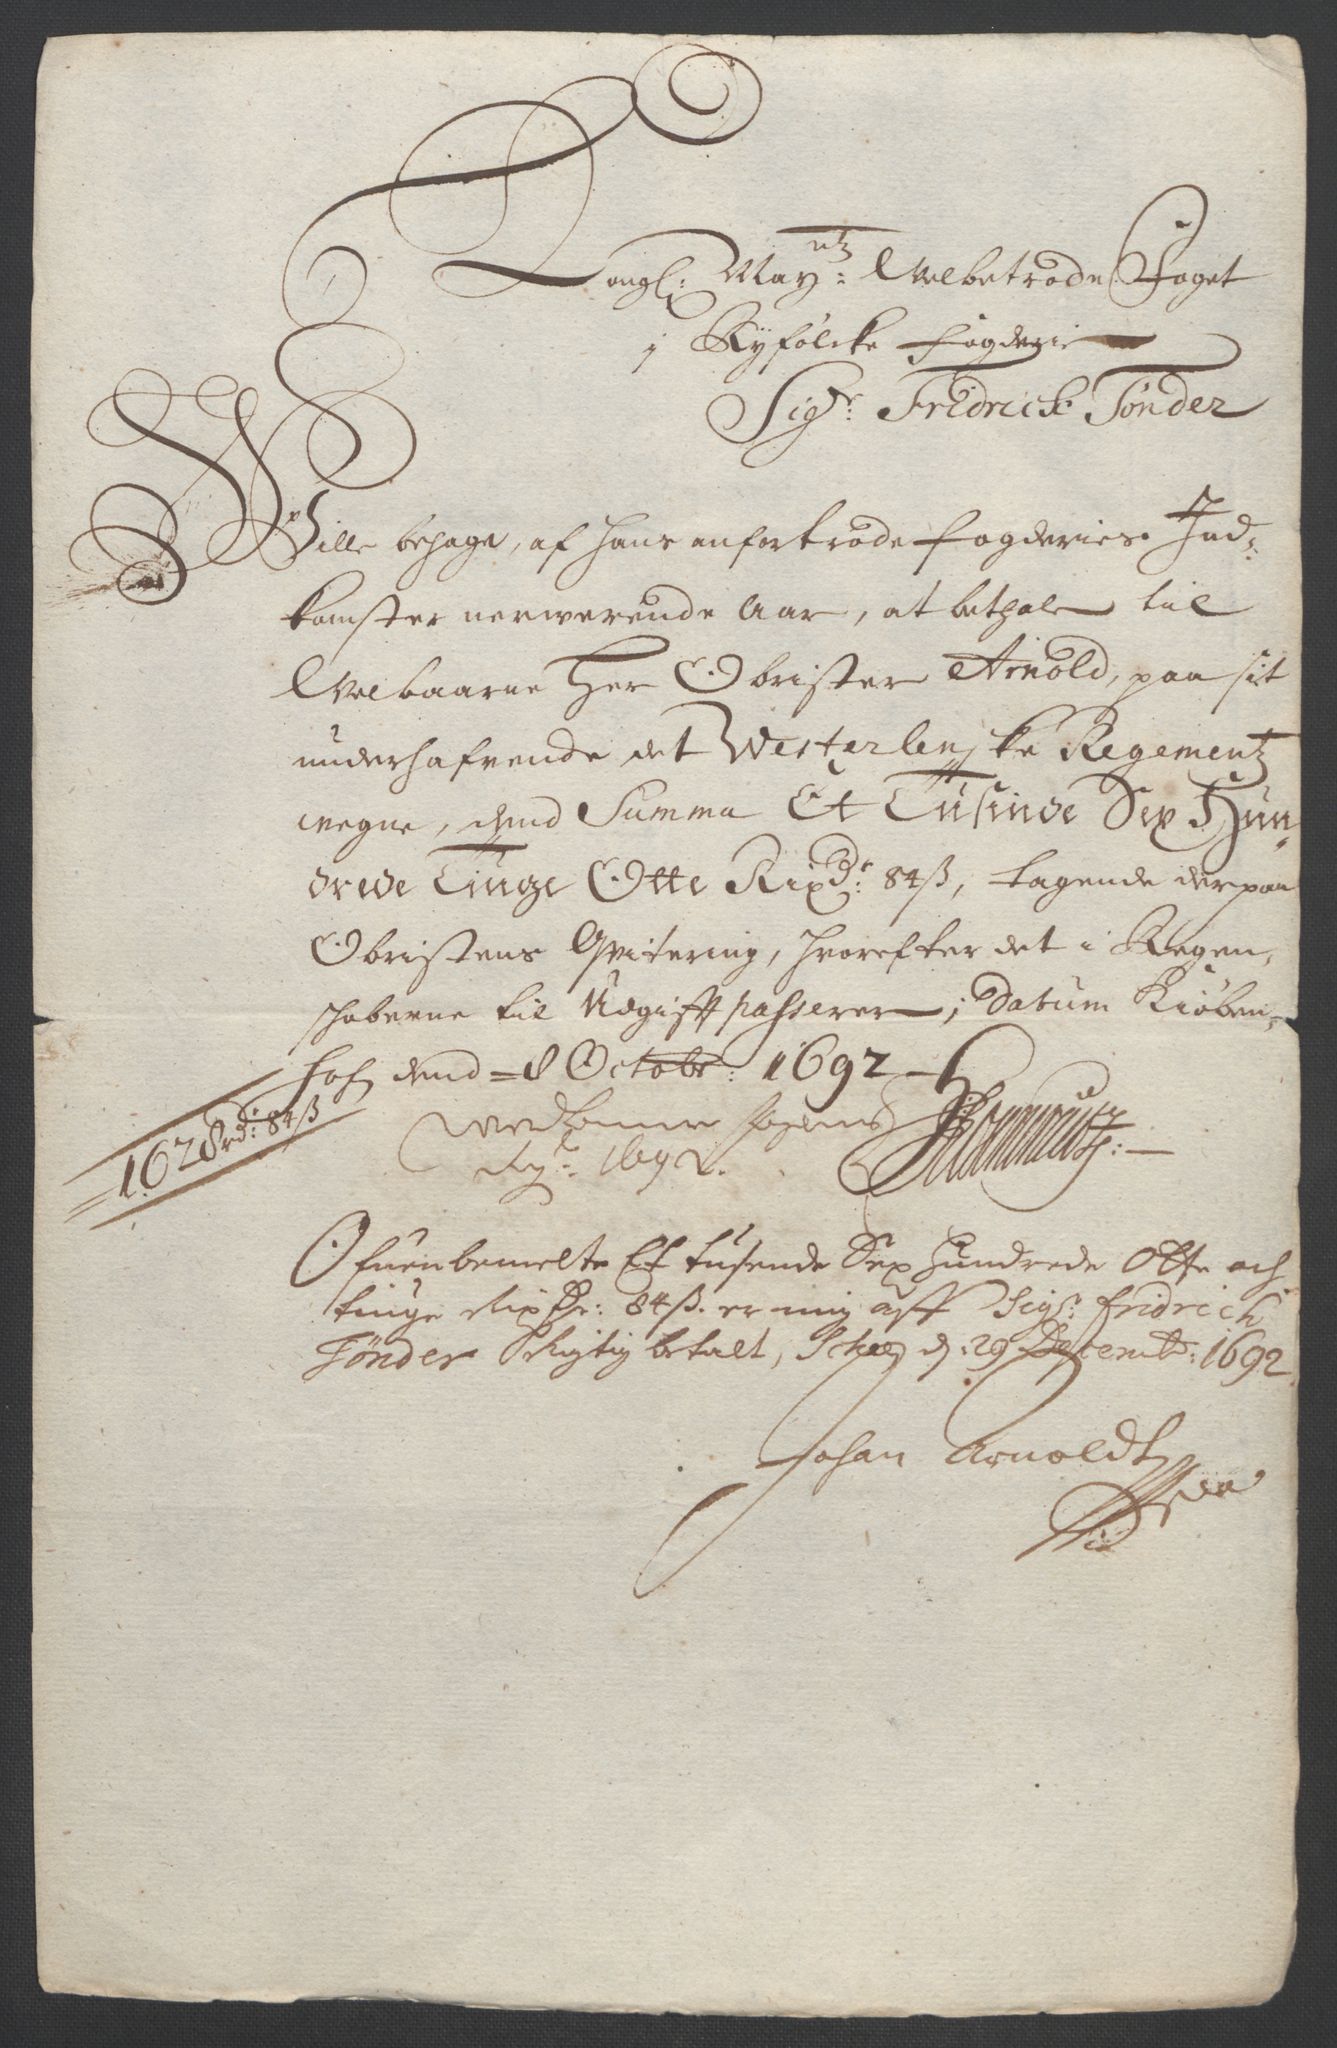 Kongl: Mayntz: Welbetrode Foget
j Ryfølcke fogderie
Sigr: Fridrick Tønder
Wille behage, af hans anfortrode fogderies Ind-
komster nerwerende Aar, at bethale til
Welbaarne Her Obrister Arnold, paa sit
underhafvende det Westerlenske Regementz
wegne, dend Summa Et Tusinde Sex Hun-
drede Tiuge Otte Rixdr: 84 ß, tagende derpaa
Obristens Qvitering, hvorefter det i Regen-
schaberne til Udgifft passerer, Datum Kiøben-
hafn dend 8 Octobr: 1692
1628 rd: 84 ß
1692.
Ofuenbemelte Et tusende Sex hundrede Otte och
tiuge Rixdr: 84 ß. er mig aff Sigr: fridrich
Tønder Rigtig betalt, d: 29 Decembr: 1692
Johan Arnoldt